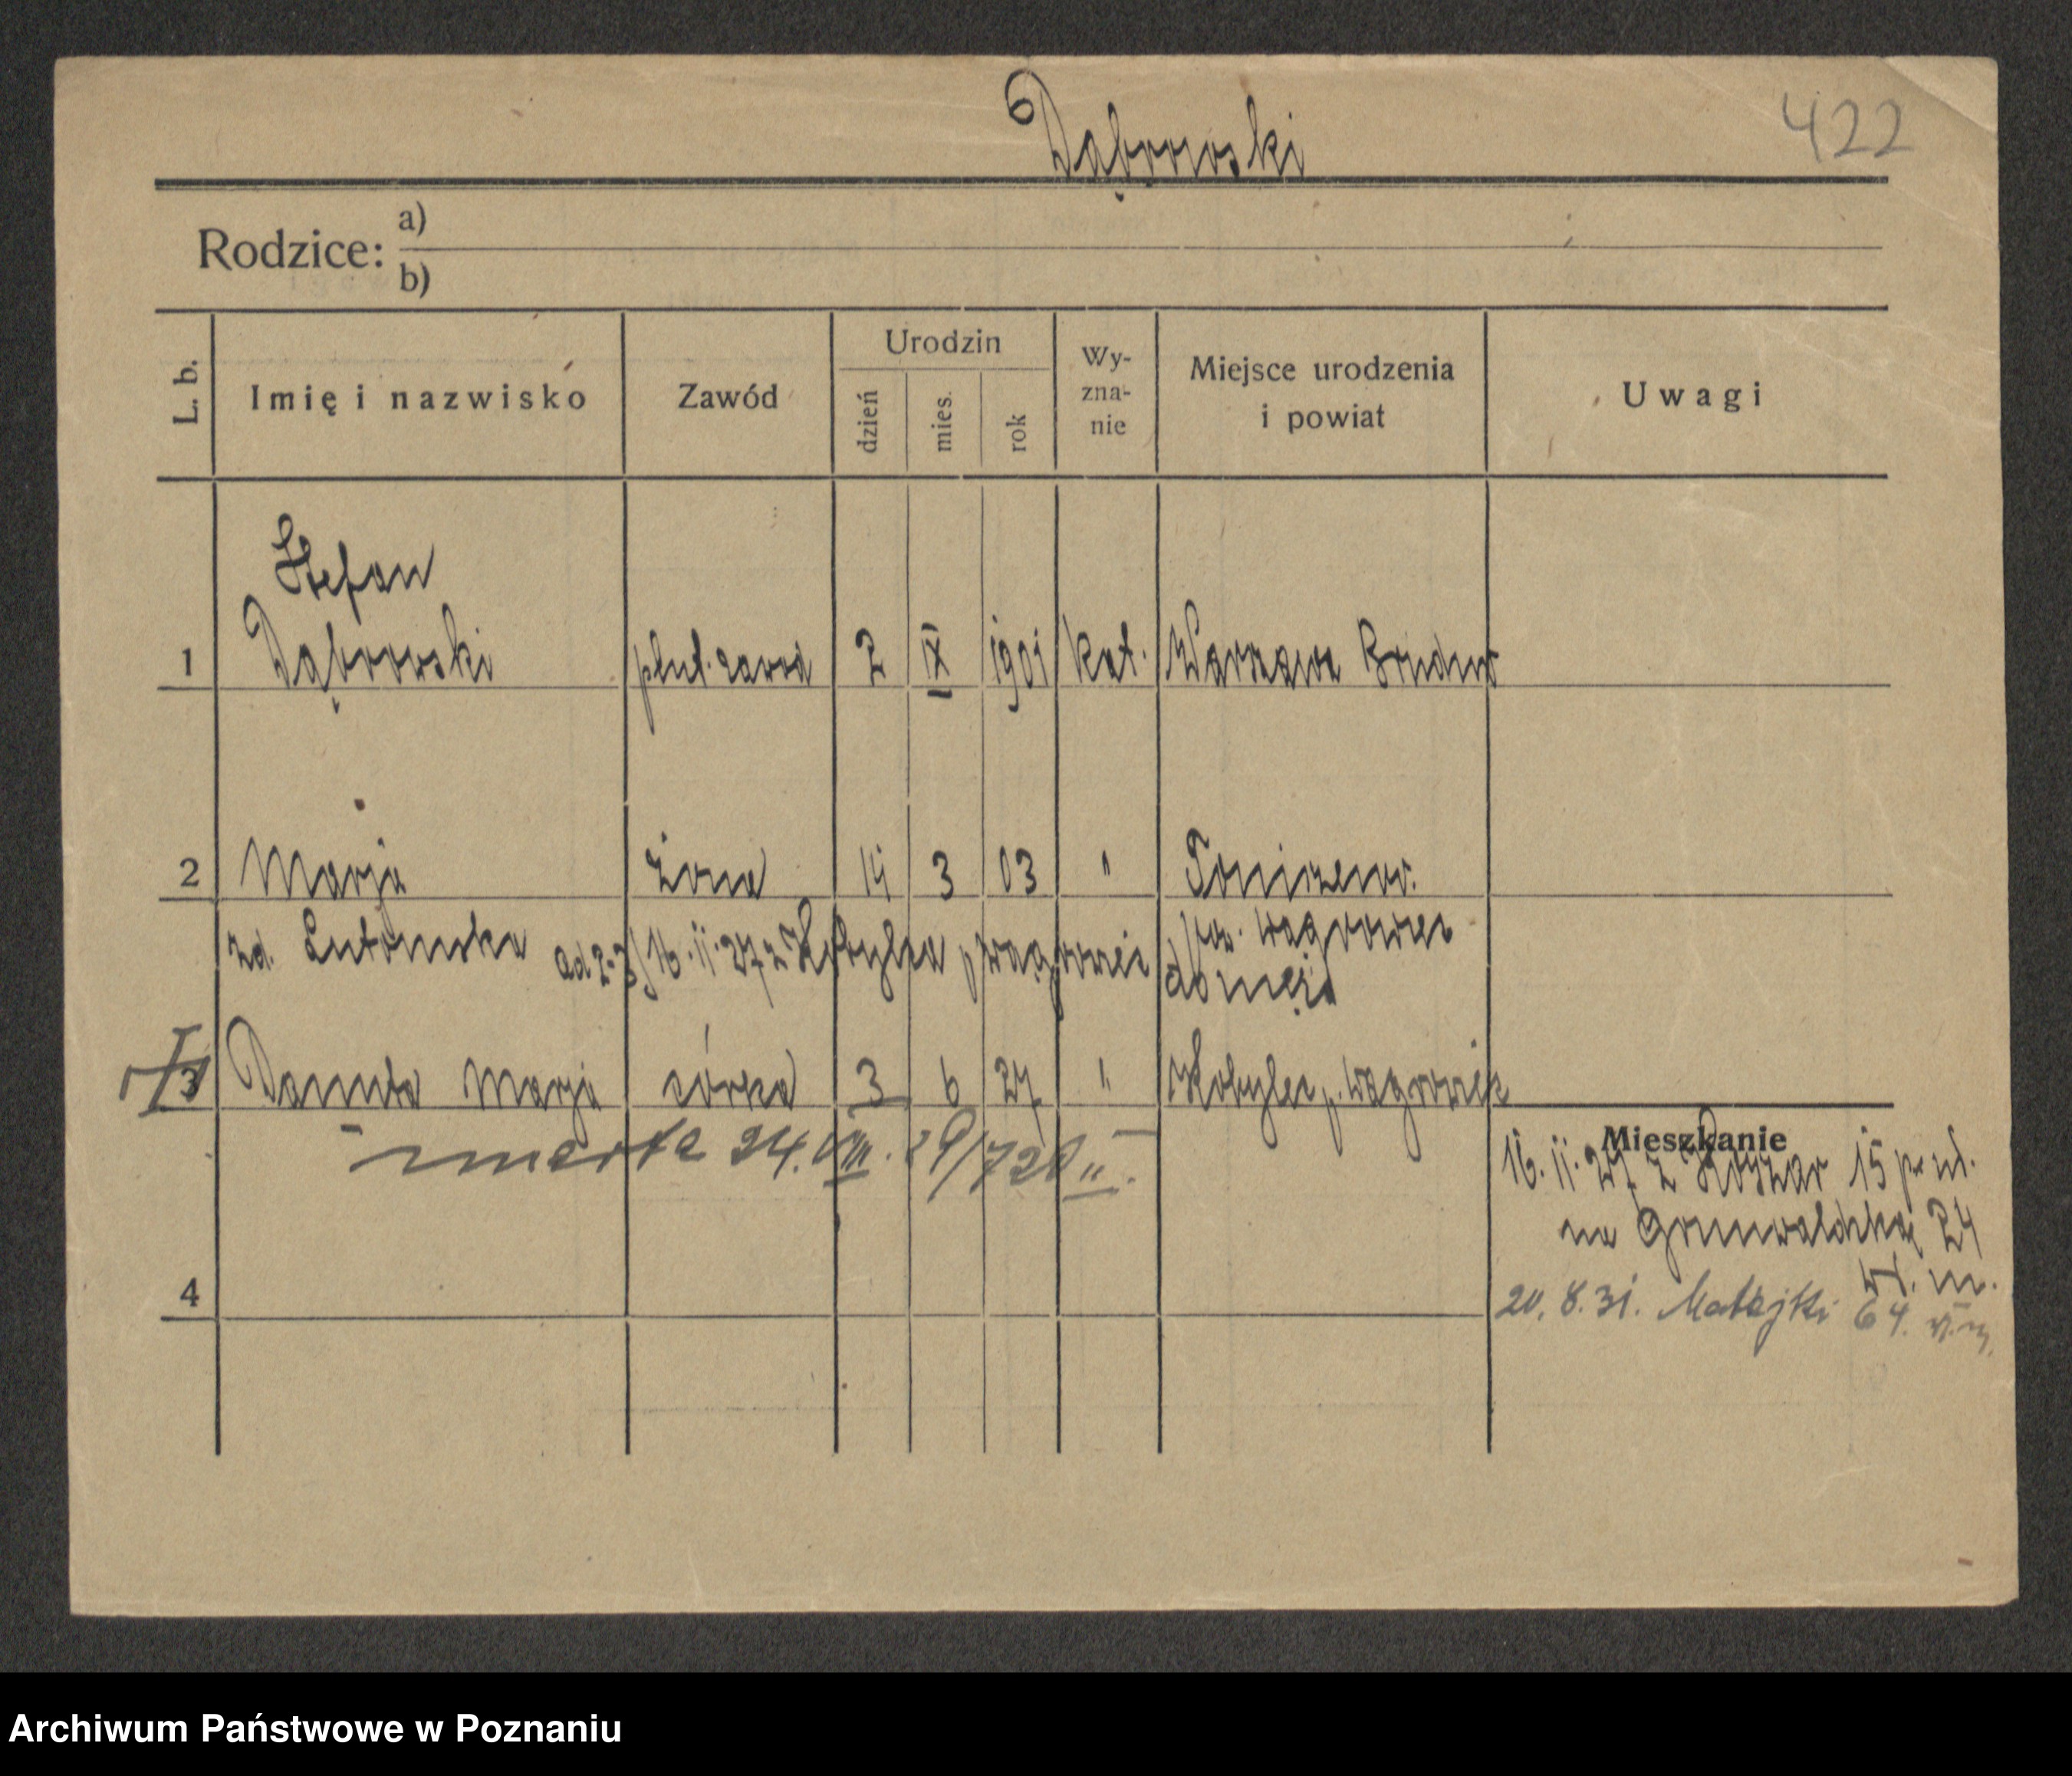 Dąbrowski
422
Rodzice: a)
b)
L. b. Imię i nazwisko Zawód Urodzin dzień mies. rok Wy-zna-nie Miejsce urodzenia i powiat Uwagi
Stefan
1 Dąbrowski plut. zawod 2 IX 1901 kat. Warszawa
2 Marja żona 14 3 03 " Toniszewo.
zd. Lutomska ad 2-3/16.11.27 z Kobylca p wągrowiec pow. wągrowiec
do męża
3 Danuta Marja córka 3 6 27 " Kobylec p. wągrowiec
- zmarła 24. VIII. 29/728 II. -
Mieszkanie
16.11.27 z Koszar 15 p. uł.
na Grunwaldzką 24
4 wł. m.
20.8.31. Matejki 64. w. m.
Archiwum Państwowe w Poznaniu